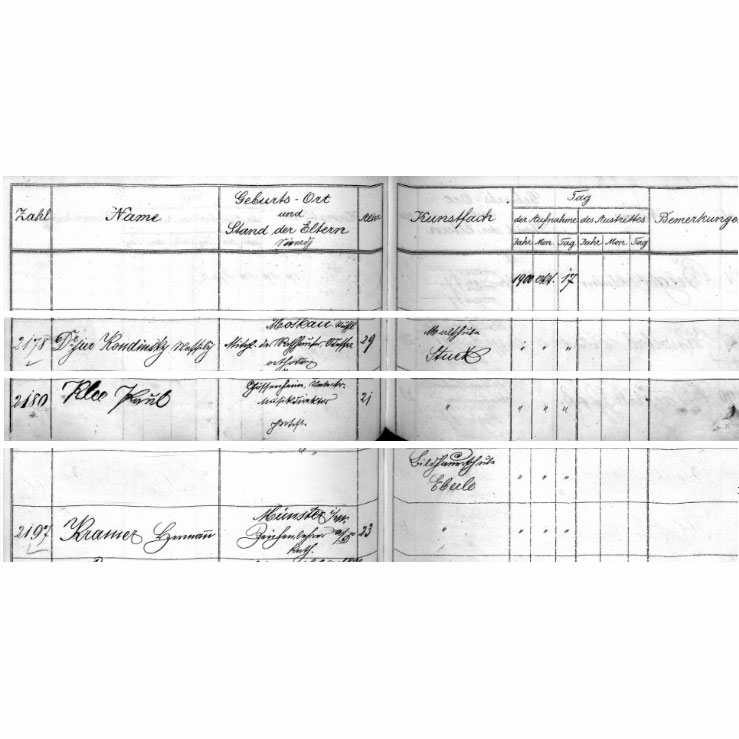 Zahl Name Geburts-Ort und Stand der Eltern Alter Kunstfach Tag der Aufnahme des Austrittes Bemerkungen
Jahr Mon. Tag Jahr Mon. Tag
1900 Okt. 17
2178 Dr jur Kandinsky Wassily Moskau 29 Malschule Stuck " " "
2180 Klee Paul Musikdirektor 21 " " " "
Bildhauerschule Eberle " " "
2197 Kramer Hermann Münster i/W. Zeichenlehrer kath. 23 " " " "